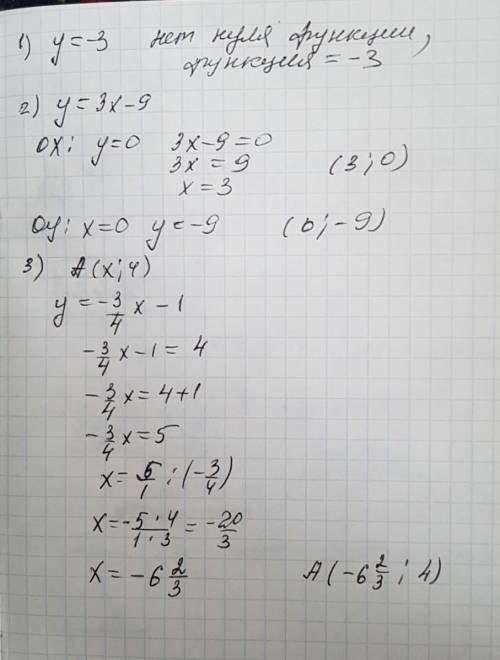 1) y = -3 нет нуля функции,
функция = -3
2) y = 3x - 9
OX: y=0 3x-9=0
3x = 9 (3; 0)
x = 3
Oy: x=0 y=-9 (0; -9)
3) A(x; 4)
y = -3/4 x - 1
-3/4 x - 1 = 4
-3/4 x = 4+1
-3/4 x = 5
x = 5/1 : (-3/4)
x = -5·4/1·3 = -20/3
x = -6 2/3 A(-6 2/3; 4)